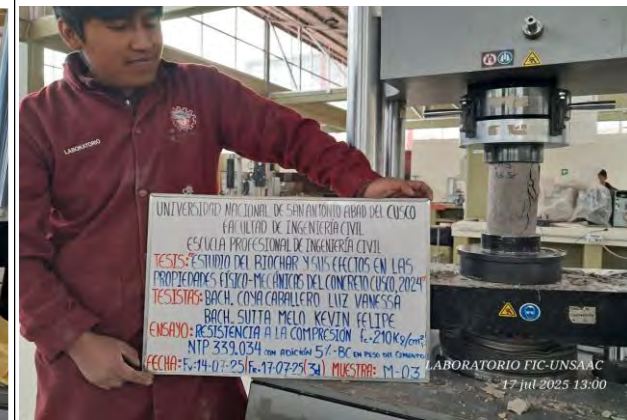 LABORATORIO
UNIVERSIDAD NACIONAL DE SAN ANTONIO ABAD DEL CUSCO
FACULTAD DE INGENIERÍA CIVIL
ESCUELA PROFESIONAL DE INGENIERÍA CIVIL
TESIS: "ESTUDIO DEL BIOCHAR Y SUS EFECTOS EN LAS
PROPIEDADES FÍSICO-MECÁNICAS DEL CONCRETO CUSCO, 2024"
TESISTAS: BACH. COYA CABALLERO LUZ VANESSA
BACH. SUTTA MELO KEVIN FELIPE
ENSAYO: RESISTENCIA A LA COMPRESION f'c=210Kg/cm²,
NTP 339.034 CON ADICIÓN 5% -BC EN PESO DEL CEMENTO
FECHA: Fv:14-07-25|Fr:17-07-25(3d) MUESTRA: M-03
LABORATORIO FIC-UNSAAC
17 jul 2025 13:00